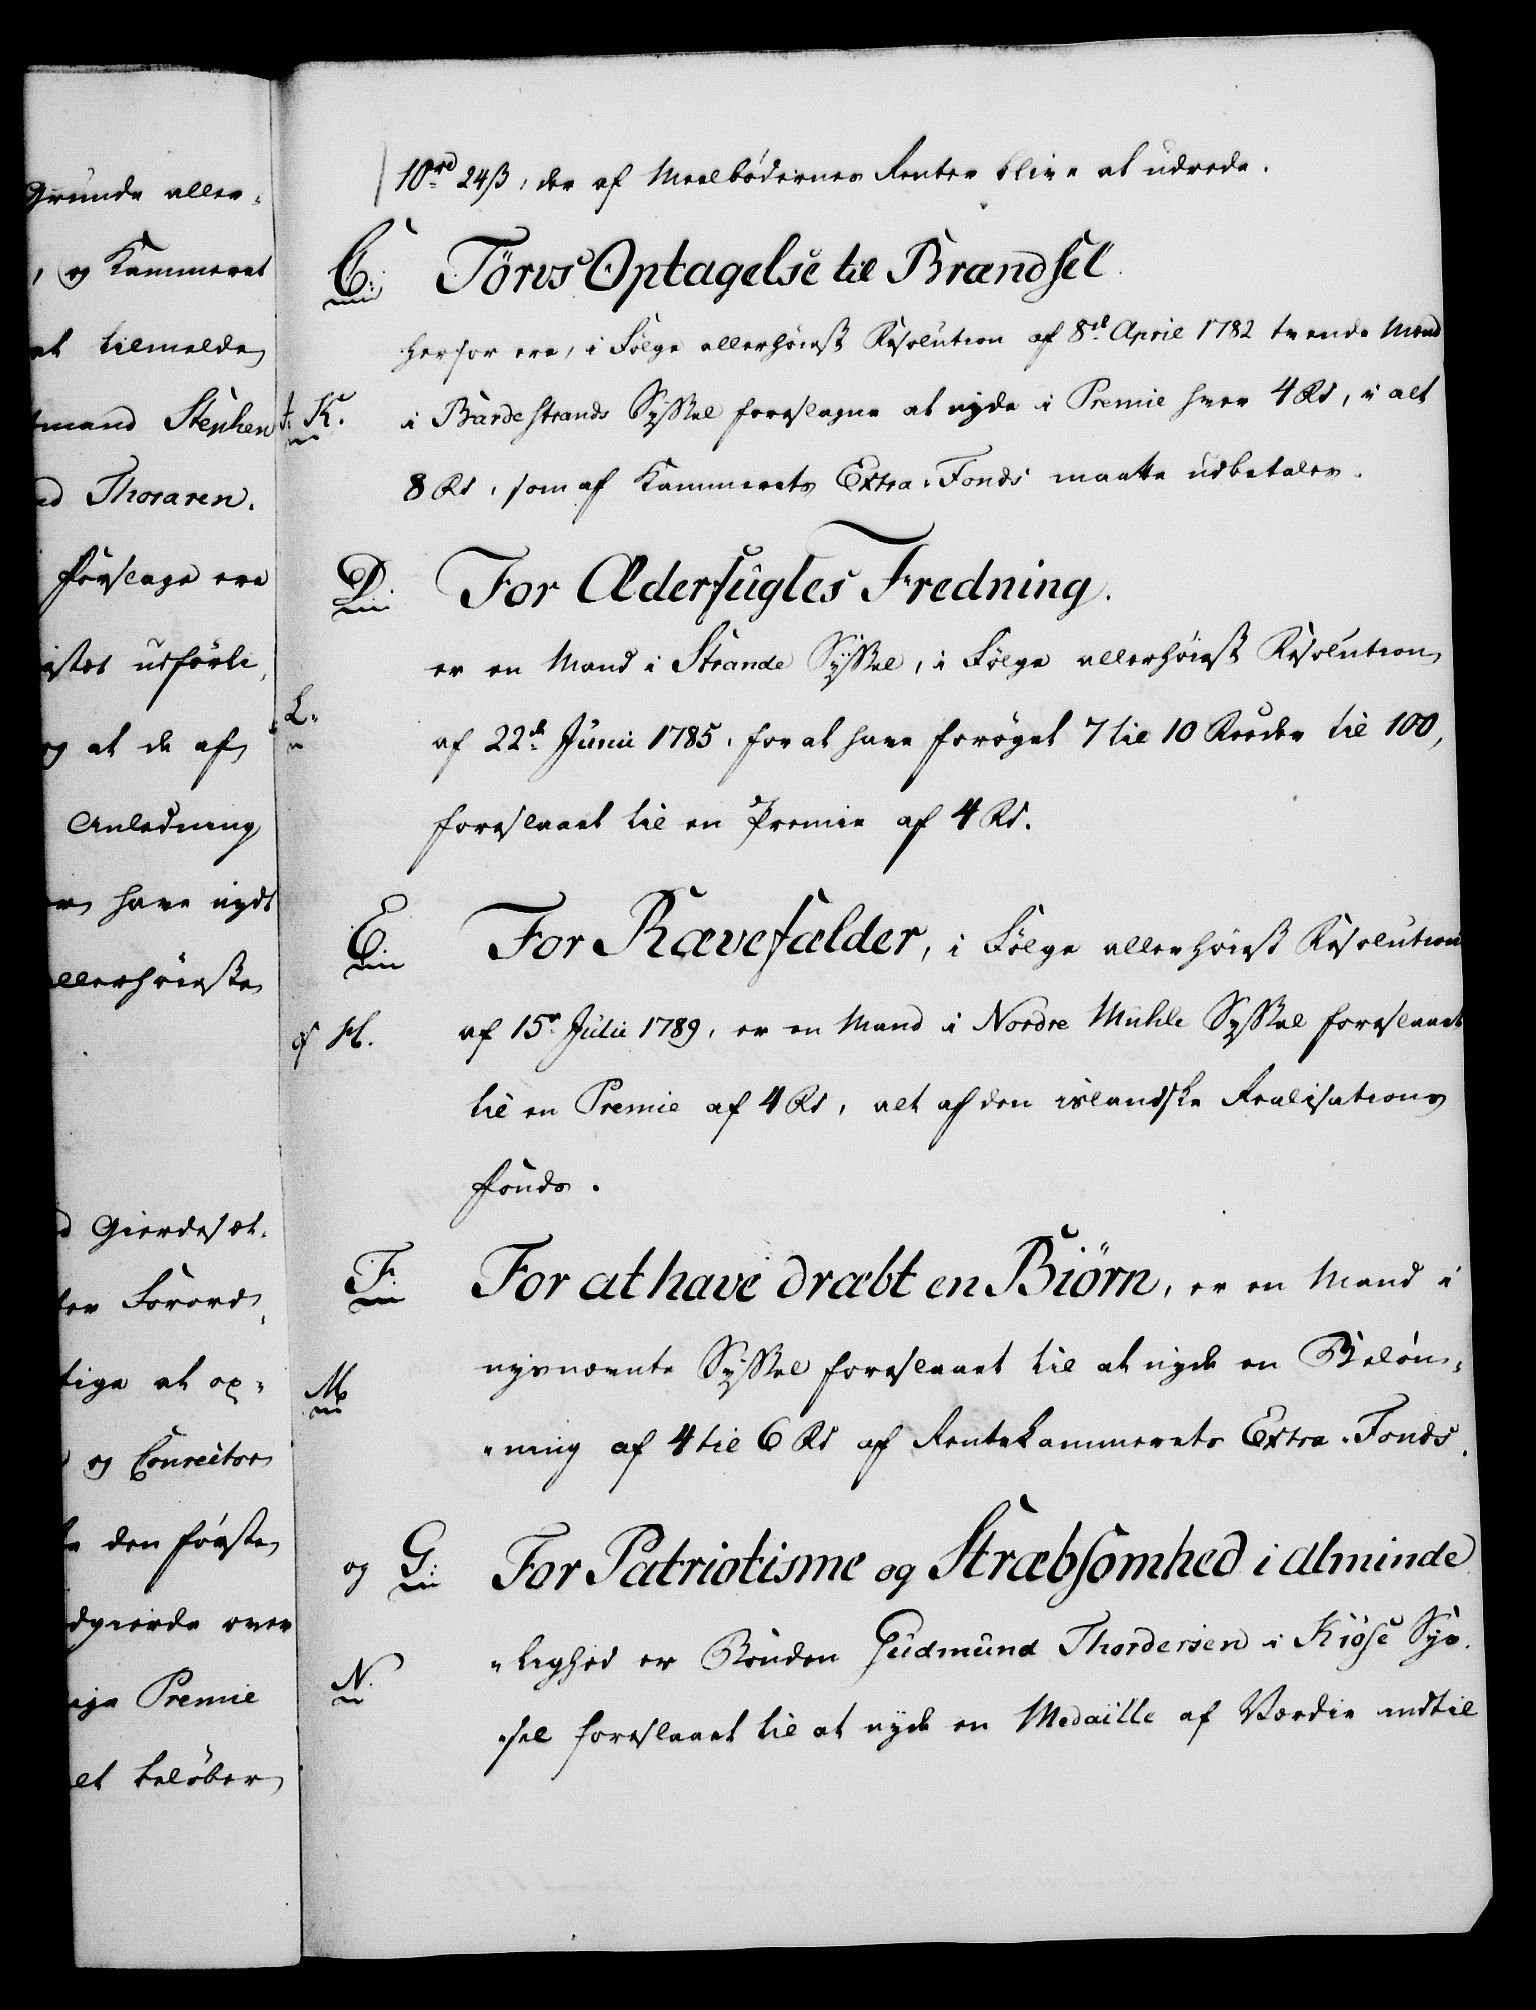 Grunde aller¬
, og Kammeret
at tilmelde
tmand Stephen
ed Thoraren.
Forslage ere
istet udførli¬
og at de af
Anledning
have nydt
allerhøieste
d Gierdesæt¬
ter Forord¬
tige at op¬
og Conrector
den første
dgierde over
Premie
alt beløber
10rd 24ß, der af Meelbødernes Renter blive at udrede.
C: Tørvs Optagelse til Brændsel.
herfor ere, i Følge allerhøiest Resolution af 8de April 1782 tvende Mænd
K. i Bardestrands Syssel foreslagne at nyde i Premie hver 4 Rd, i alt
8 Rd, som af Kammerets Extra-Fonds maatte udbetales.
D. For Ederfugles Fredning.
er en Mand i Strande Syssel, i Følge allerhøiest Resolution
L. af 22de Junii 1785, for at have forøget 7 til 10 Reeder til 100,
foreslaaet til en Premie af 4 Rd.
E. For Rævefælder, i Følge allerhøiest Resolution
af 15r Julii 1789, er en Mand i Nordre Muhle Syssel foreslaaet
til en Premie af 4 Rd, alt af den islandske Realisations
Fonds.
F. For at have dræbt en Biørn, er en Mand i
M. nysnævnte Syssel foreslaaet til at nyde en Beløn¬
ning af 4 til 6 Rd af Rentekammerets Extra-Fonds.
og G: For Patriotisme og Stræbsomhed i Alminde
N. lighed er Bonden Gudmund Thordersen i Kiøse Sys¬
sel foreslaaet til at nyde en Medaille af Værdie indtil